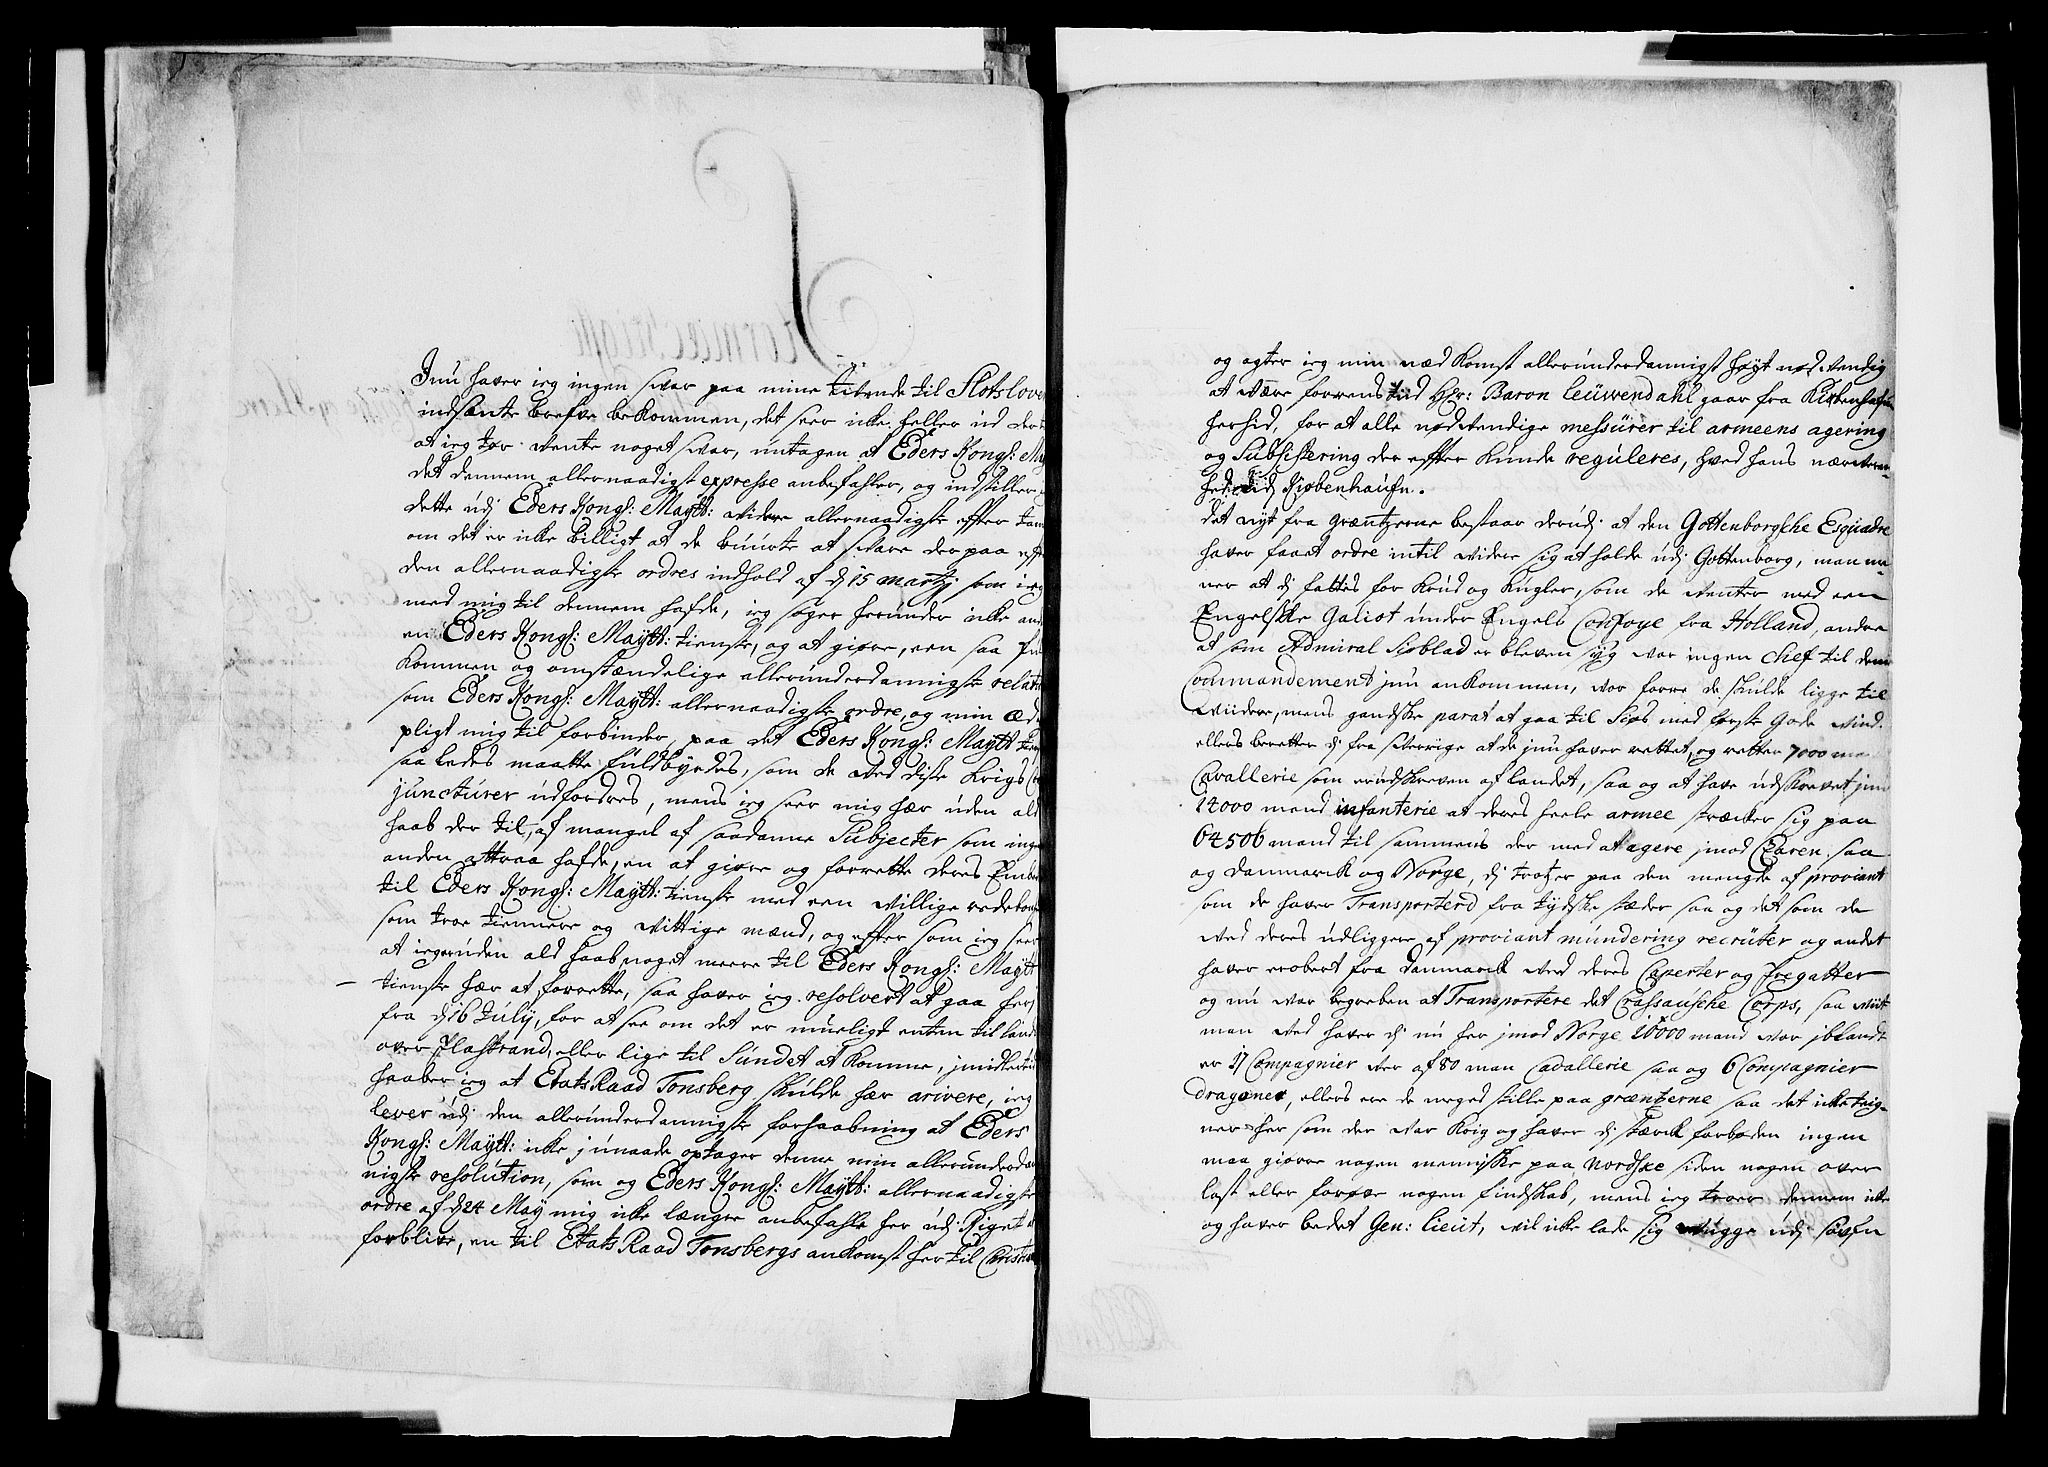 Jnu haver ieg ingen svar paa mine tilende til Slotslove
indsante brefve bekommen, det seer ikke heller ud der
at ieg tør vente noget svar, untagen at Eders Kongl: May
det dennem allernaadigst expresse anbefahler, og indstiller
dette udj Eders Kongl: Maÿtt: videre allernaadigste efter
om det er ikke billigt at de buurte at svare der paa eff
den allernaadigste ordres indhold af dj 15 martij som ieg
med mig til dennem hafde, ieg søger herunder ikke and
en Eders Kongl: Maÿtt: tieneste, og at giøre, een saa ful
kommen og omstændelige allerunderdannigste relati
som Eders Kongl: Maÿtt: allernaadigste ordre, og min æd
pligt mig til forbinder, paa det Eders Kongl: Maÿtt tien
saaledes maatte fuldbyrdes, som de ved disse Krigs Co
juncturer udfordres, mens ieg seer mig hær uden ald
haab der til, af mangel af saadanne Subjecter som inge
anden attraa hafde, en at giøre og forrette deres Embe
til Eders Kongl: Maÿtt: tieneste med een villige redebon
som troe tiennere og vittige mænd, og efter som ieg seer
at ieg er uden ald haab noget meere til Eders Kongl: Maÿtt
tieneste hær at forrette, saa haver ieg resolvert at gaa her
fra dj 16 Julÿ, for at see om det er mueligt enten til land
over Flastrand, eller lige til Sundet at komme, jmidlertid
haaber ieg at Etats Raad Tonsberg skulde hær arivere, ieg
lever udj den allerunderdannigste forhaabning at Eders
Kongl: Maÿtt: ikke j unaade optager denne min allerunderda
nigste resolution, som og Eders Kongl: Maÿtt: allernaadigste
ordre af dj 24 Maÿ mig ikke længre anbefahle her udj Riget
forblive, en til Etats Raad Tonsbergs ankomst her til Christia
og agter ieg min ned Komst allerunderdannigst høyt nødvendig
at være forrens tid Hr: Baron Leüwendahl gaar fra Kiøbenhafn
herhid, for at alle nødvendige messurer til armeens agering
og Subsistering der effter kunde reguleres, hved hans nærværen-
hed udj Kiøbenhaufn.
Det nyt fra grentzerne bestaar derudj at den Gottenborgsche Esquadre
haver faaet ordre intil videre sig at holde udj Gottenborg, man me-
ner at dj fattes for Krud og Kugler, som de venter med een
Engelske Galiot under Engels Convoye fra Holland, andre
at som Admiral Siøblad er bleven syg var ingen Chef til dem
Commandement jnu ankommen, vor forre de skulde ligge til
viidere, mens gandske parat at gaa til Siøs med første gode vind.
ellers beretter dj fra Sverrige at de jnu haver rettet, og retter 7000 ma
Cavallerie som er udskreven af landet, saa og at have udskrevet jnu
14000 mand infanterie at deres heele armee strecker sig paa
64506 mand til sammens der med at agere jmod Czaren saa
og Danmarck og Norge, dj trotzer paa den mengde af proviant
som de haver Transporterd fra tydske stæder saa og det som de
ved deres udliggere af proviant mundering recruter og andet
haver erobert fra Danmarck ved deres Caperter og Fregatter
og nu var begreben at Transportere det Crassausche Corps, saa viit
man ved haver dj nu her jmod Norge 20000 mand vor jblandt
er 17 Compagnier ver af 80 man Cavallerie saa og 6 Compagnier
dragoner, ellers ere de meged stille paa grentzerne saa det ikke teig-
ner her som der var Krig og haver dj sterck forboden ingen
maa giørre nogen menniske paa Nordske siden nogen over
last eller forøve nogen findskab, mens ieg troer dennem ikke
og haver bedet Gen: Lieut, vil ikke lade sig vugge udj søvfn